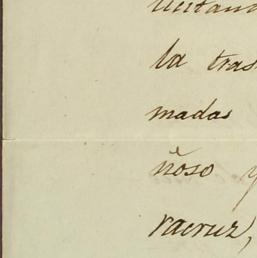 la tras
madas
ñoso y
racruz,